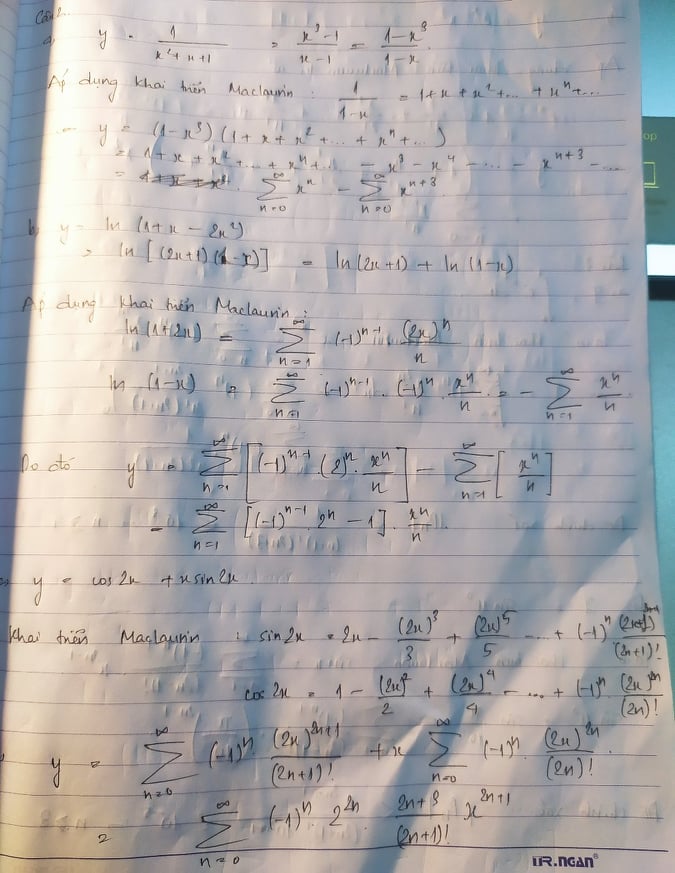 Câu 2.
a) y = 1/(x²+x+1) = (x³-1)/(x-1) = (1-x³)/(1-x).
Áp dụng khai triển Maclaurin: 1/(1-x) = 1+x+x²+...+x^n+...
y = (1-x³)(1+x+x²+...+x^n+...)
= 1+x+x²+...+x^n+... - x³ - x⁴ - ... - x^(n+3) - ...
= ∑_{n=0}^{∞} x^n - ∑_{n=0}^{∞} x^(n+3)
b) y = ln (1+x-2x²)
= ln [(2x+1)(1-x)] = ln(2x+1) + ln(1-x)
Áp dụng khai triển Maclaurin:
ln(1+2x) = ∑_{n=1}^{∞} (-1)^(n-1) (2x)^n/n
ln (1-x) = ∑_{n=1}^{∞} (-1)^(n-1) . (-1)^n . x^n/n = - ∑_{n=1}^{∞} x^n/n
Do đó y = ∑_{n=1}^{∞} [(-1)^(n-1) . (2)^n . x^n/n] - ∑_{n=1}^{∞} [x^n/n]
= ∑_{n=1}^{∞} [(-1)^(n-1) . 2^n - 1] . x^n/n
y = cos2x + x sin2x
Khai triển Maclaurin : sin2x = 2x - (2x)³/3 + (2x)⁵/5 - ... + (-1)^n (2x)^(2n+1)/(2n+1)!
cos2x = 1 - (2x)²/2 + (2x)⁴/4 - ... + (-1)^n . (2x)^(2n)/(2n)!
y = ∑_{n=0}^{∞} (-1)^n (2x)^(2n+1)/(2n+1)! + x ∑_{n=0}^{∞} (-1)^n . (2x)^(2n)/(2n)!
= ∑_{n=0}^{∞} (-1)^n . 2^(2n) . (2n+3)/(2n+1)! x^(2n+1)
TR.NGAN®